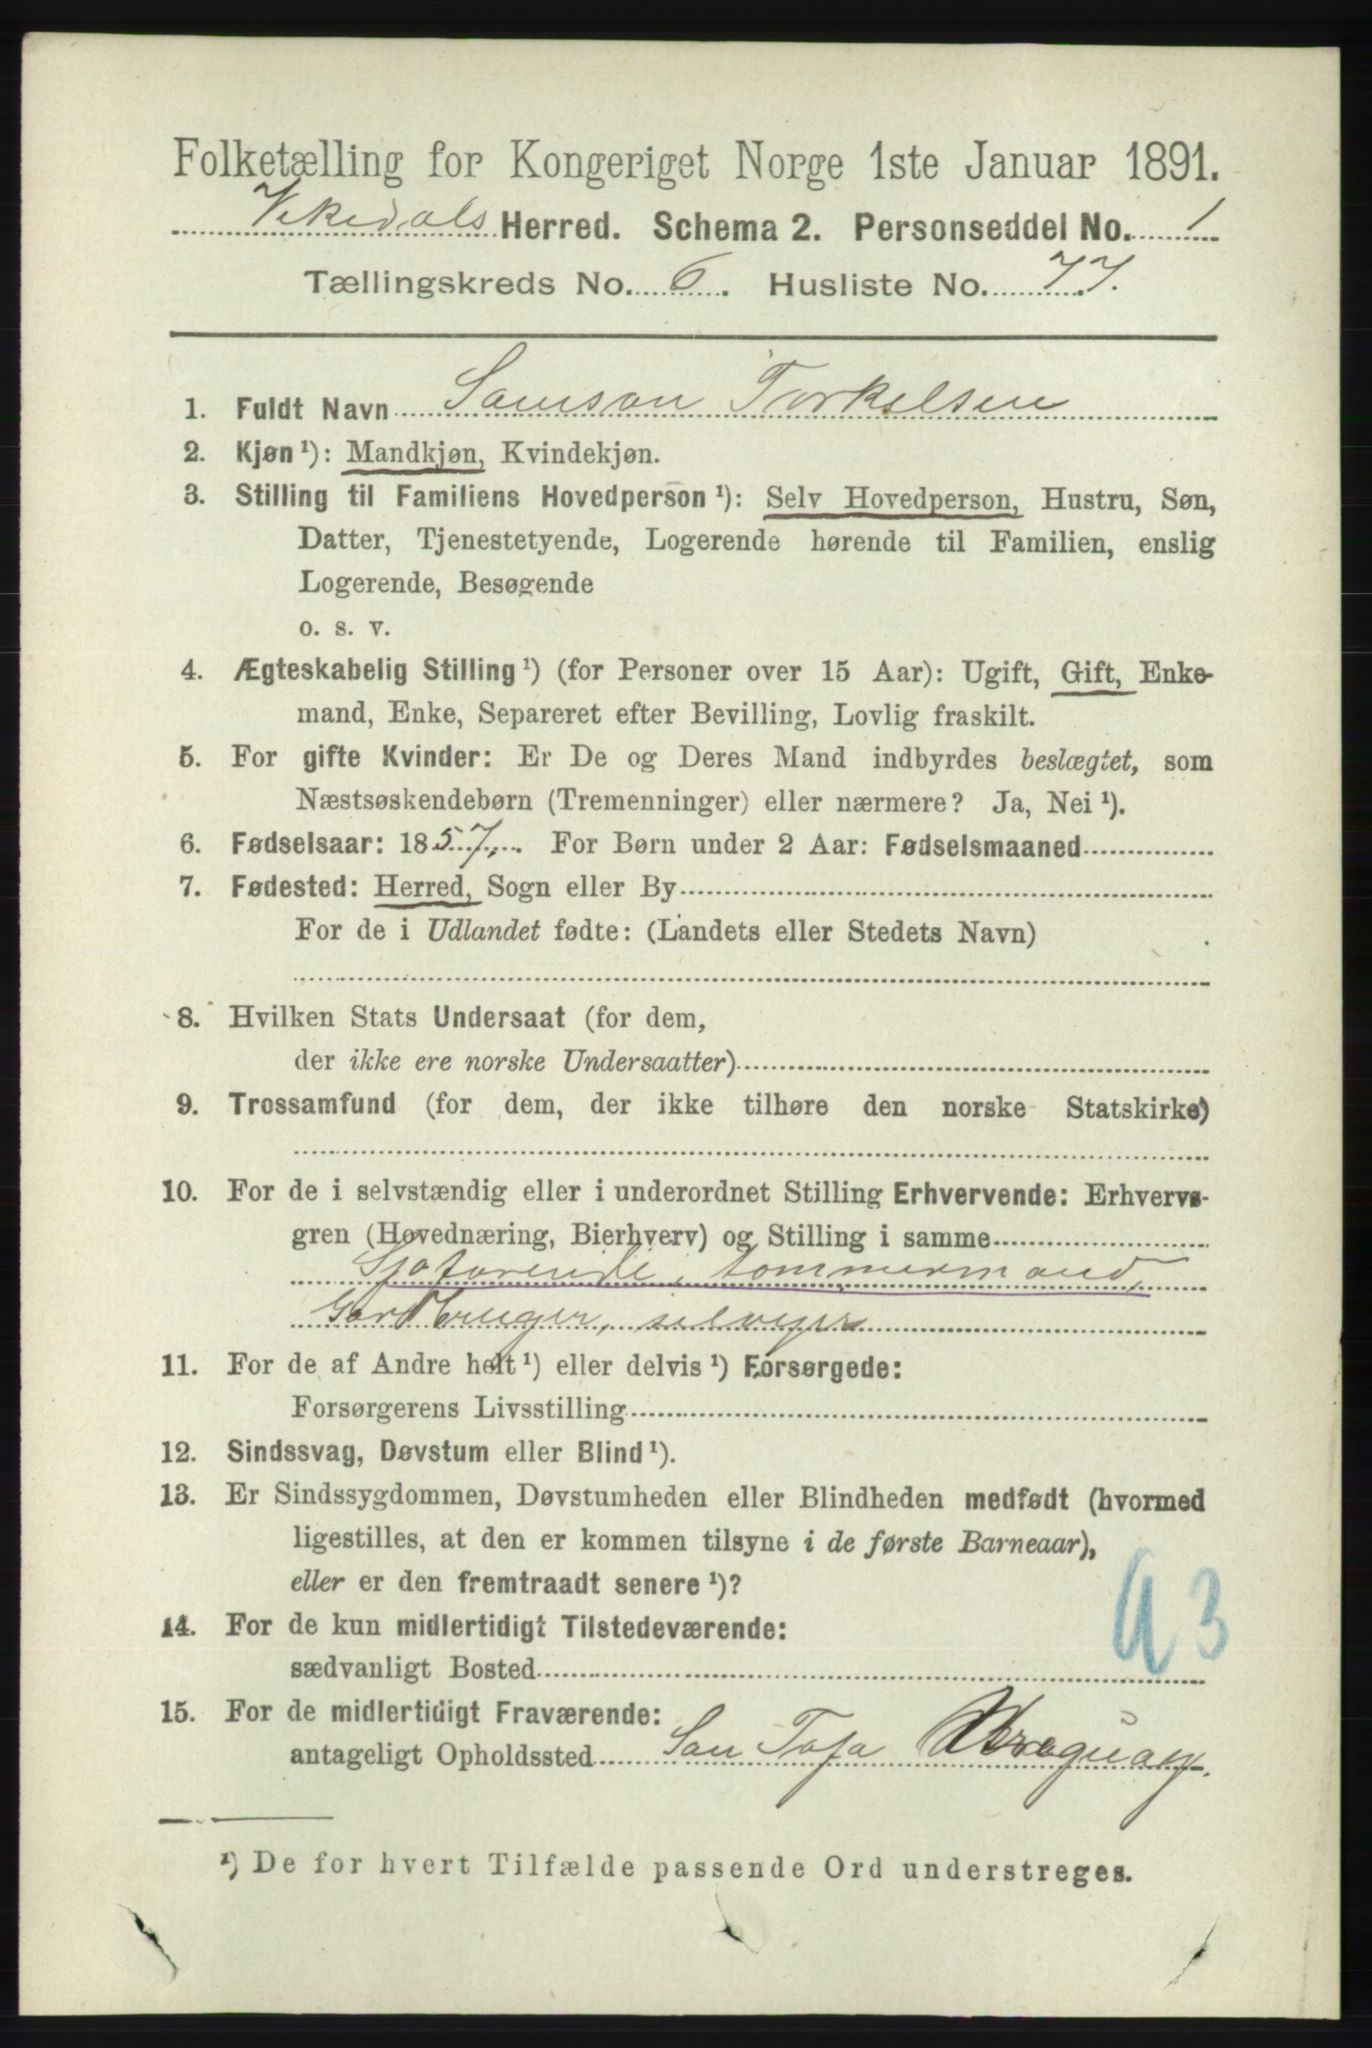 Folketælling for Kongeriget Norge 1ste Januar 1891.
Vikedals Herred. Schema 2. Personseddel No. 1
Tællingskreds No. 6. Husliste No. 77.
1. Fuldt Navn Samson Torkelsen
2. Kjøn ¹): Mandkjøn, Kvindekjøn.
3. Stilling til Familiens Hovedperson ¹): Selv Hovedperson, Hustru, Søn,
Datter, Tjenestetyende, Logerende hørende til Familien, enslig
Logerende, Besøgende
o. s. v.
4. Ægteskabelig Stilling ¹) (for Personer over 15 Aar): Ugift, Gift, Enke-
mand, Enke, Separeret efter Bevilling, Lovlig fraskilt.
5. For gifte Kvinder: Er De og Deres Mand indbyrdes beslægtet, som
Næstsøskendebørn (Tremenninger) eller nærmere? Ja, Nei ¹).
6. Fødselsaar: 1857. For Børn under 2 Aar: Fødselsmaaned
7. Fødested: Herred, Sogn eller By
For de i Udlandet fødte: (Landets eller Stedets Navn)
8. Hvilken Stats Undersaat (for dem,
der ikke ere norske Undersaatter)
9. Trossamfund (for dem, der ikke tilhøre den norske Statskirke)
10. For de i selvstændig eller i underordnet Stilling Erhvervende: Erhvervs-
gren (Hovednæring, Bierhverv) og Stilling i samme
Sjøfarende, tømmermand,
Gardbruger, selveger
11. For de af Andre helt ¹) eller delvis ¹) Forsørgede:
Forsørgerens Livsstilling
12. Sindssvag, Døvstum eller Blind ¹).
13. Er Sindssygdommen, Døvstumheden eller Blindheden medfødt (hvormed
ligestilles, at den er kommen tilsyne i de første Barneaar),
eller er den fremtraadt senere ¹)?
14. For de kun midlertidigt Tilstedeværende:
sædvanligt Bosted
a 3
15. For de midlertidigt Fraværende:
antageligt Opholdssted San Tafa Uruguay.
¹) De for hvert Tilfælde passende Ord understreges.